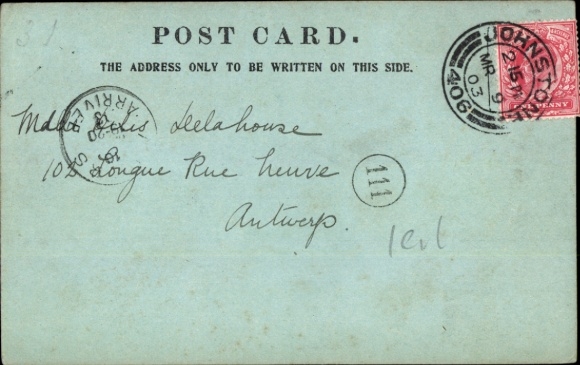 POST CARD.
THE ADDRESS ONLY TO BE WRITTEN ON THIS SIDE.
JOHNSTONE
2.15 PM
MR 9
03
409
PENNY
ARRIVEE
Delahouse
102 Longue Rue Neuve
111
Antwerp.